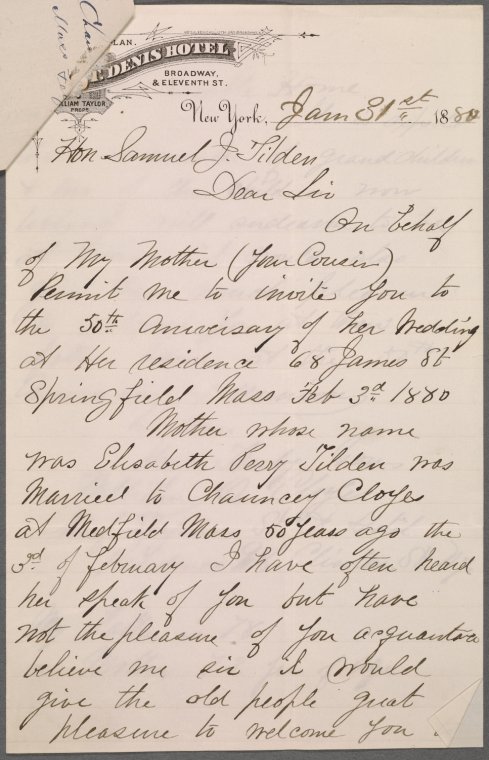 Chai
Mass
LAN.
ST. DENIS HOTEL
BROADWAY,
& ELEVENTH ST.
LLIAM TAYLOR
PROPR.
New York, Jan 31st 1880
Hon Samuel J. Tilden
Dear Sir
On behalf
of My Mother (Your Cousin)
Permit me to invite You to
the 50th Aniversary of her Wedding
at Her residence 68 James St
Springfield Mass Feb 3d 1880
Mother whose name
was Elisabeth Perry Tilden was
Married to Chauncey Cloyes
at Medfield Mass 50 Years ago the
3d of february I have often heard
her speak of You but have
not the pleasure of You acquantace
believe me sir it would
give the old people great
pleasure to welcome You